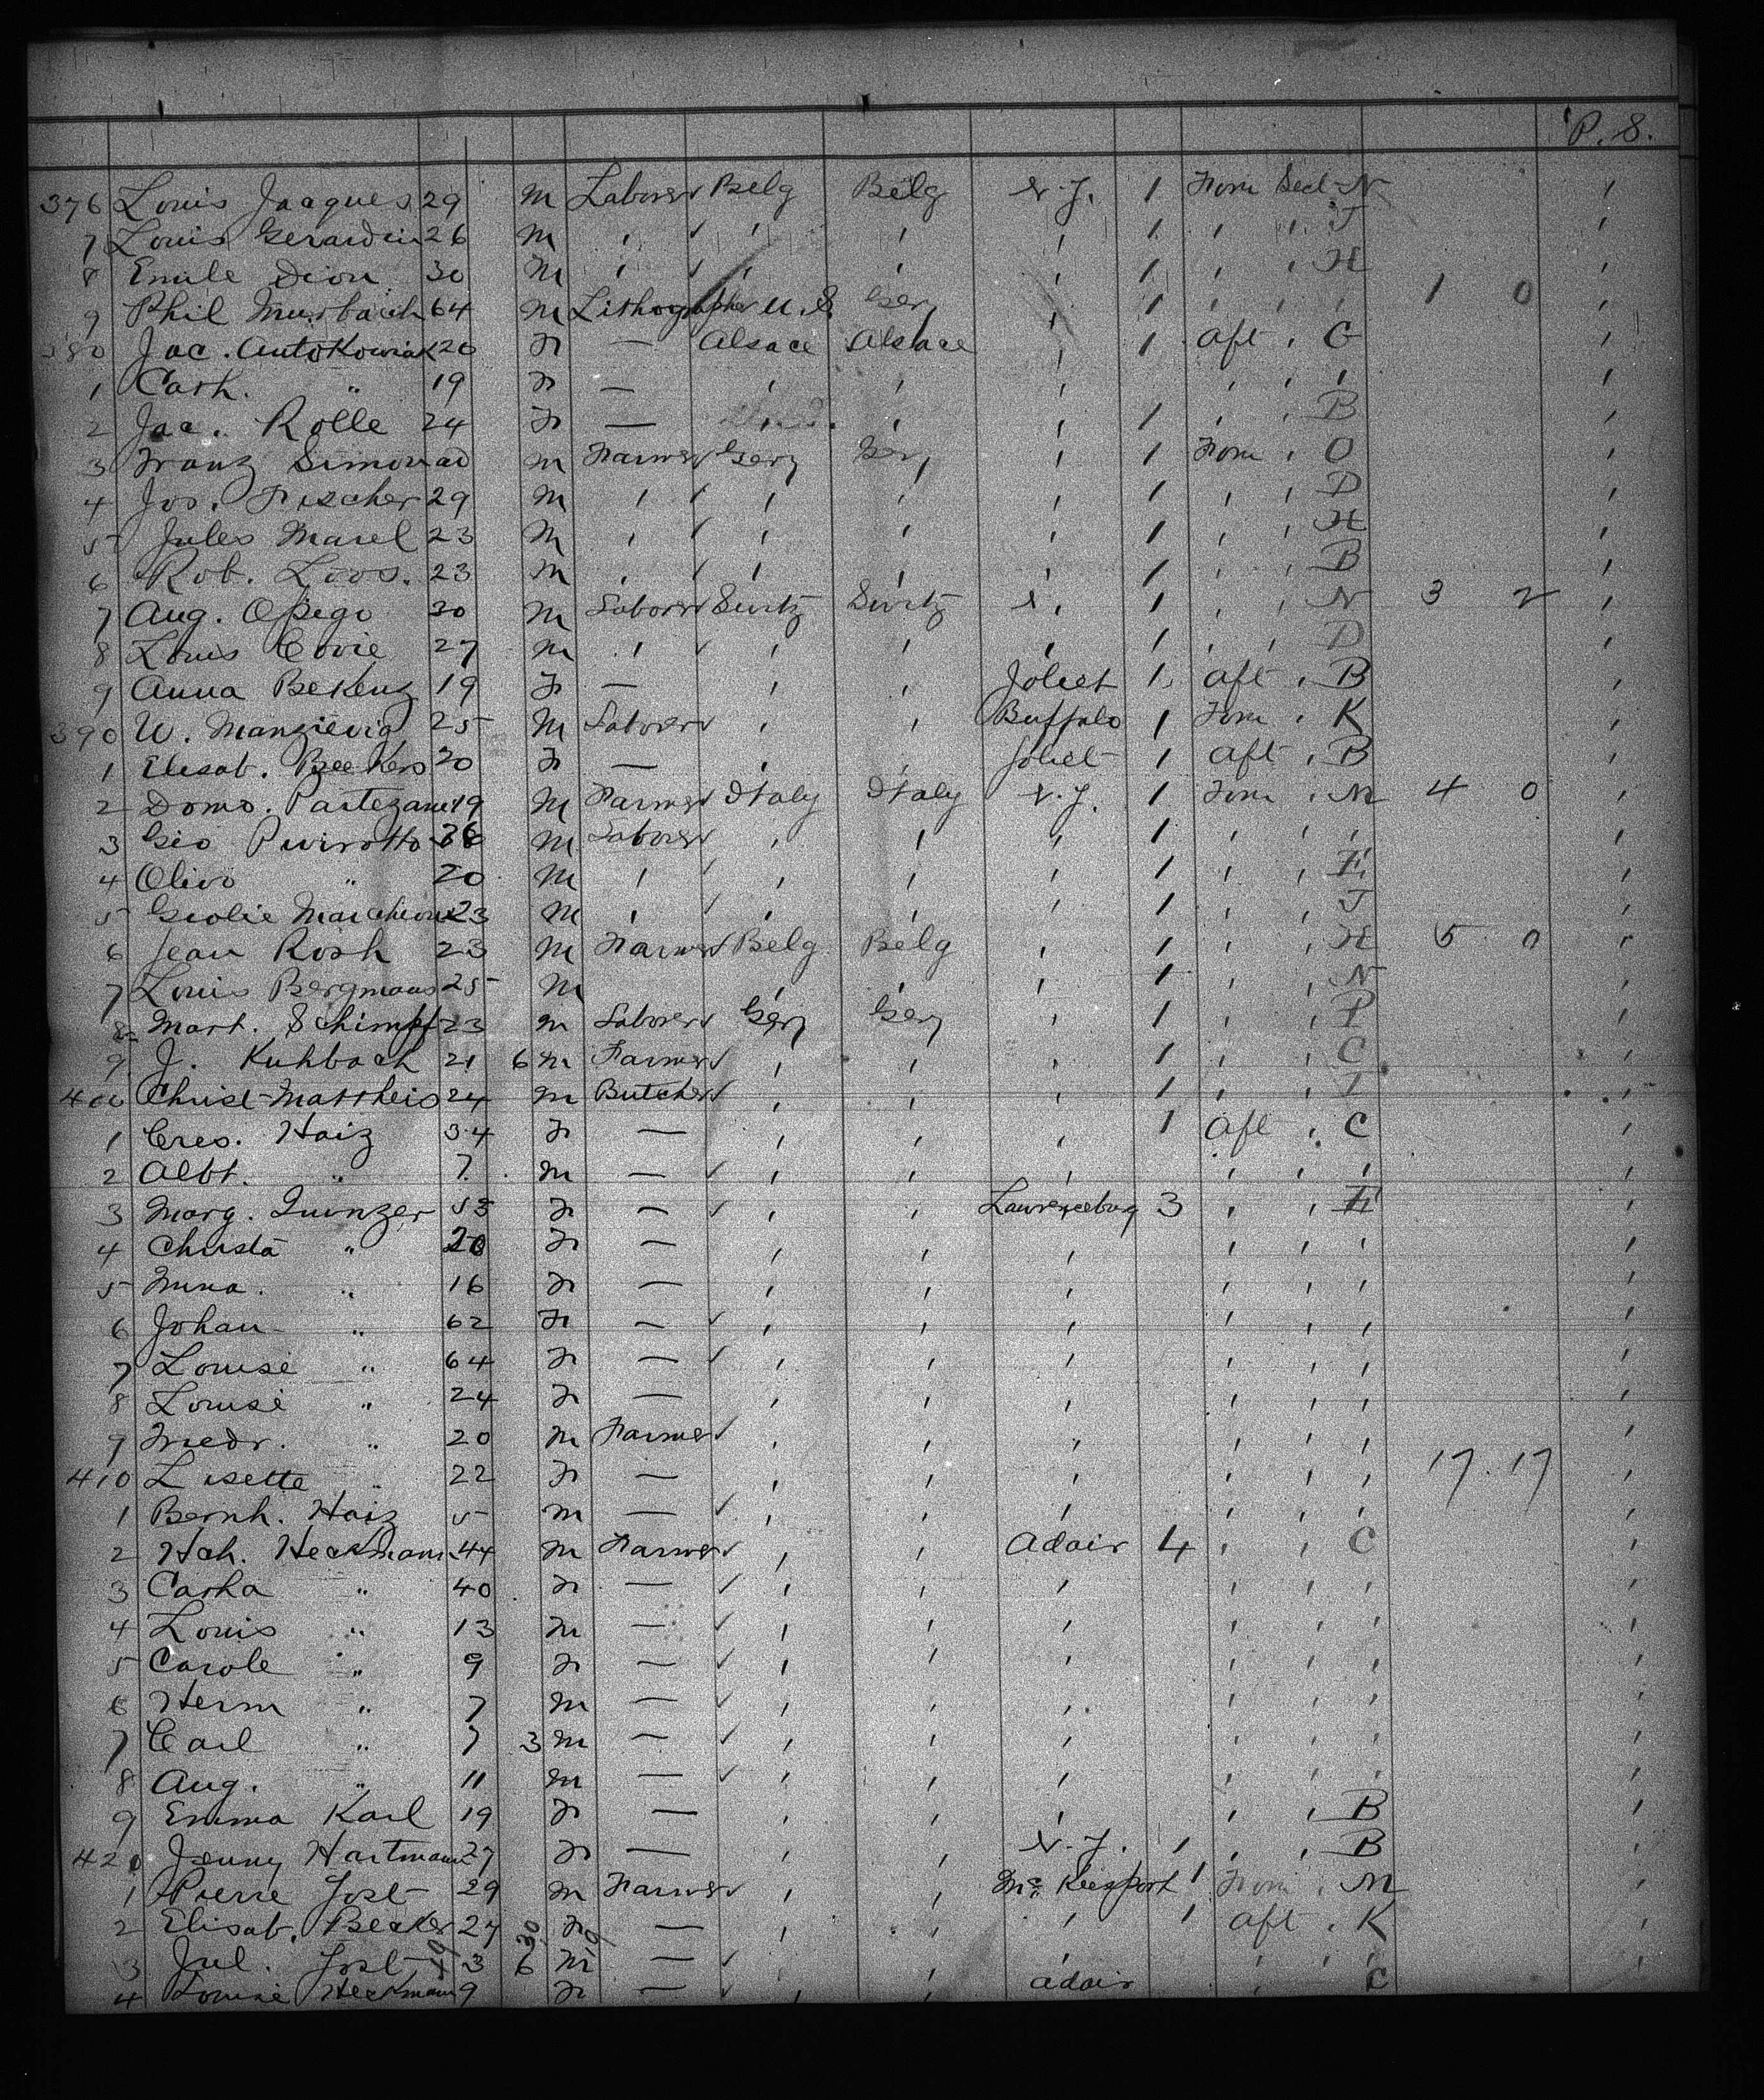 P. S.
376 Louis Jacques 29 M Laborer Belg Belg N.Y. 1 Forw Sect N
7 Louis Gerardin 26 M ' ' ' ' 1 ' ' J
8 Emile Dion 30 M ' ' ' ' 1 ' ' H
9 Phil Mursbach 64 M Lithographer U.S. Gery ' 1 ' ' ' 1 0
380 Jac. Autokowiak 20 F — Alsace Alsace ' 1 Aft ' G
1 Cath. " 19 F — ' ' ' ' ' '
2 Jac. Rolle 24 F — ' ' ' 1 ' ' B
3 Franz Simon M Farmer Gery Gery ' 1 Forw ' O
4 Jos. Fischer 29 M ' ' ' ' 1 ' ' D
5 Jules Marel 23 M ' ' ' ' 1 ' ' H
6 Rob. Loos. 23 M ' ' ' ' 1 ' ' B
7 Aug. Opego 30 M Laborer Switz Switz 1 ' ' N 3 2
8 Louis Covie 27 M ' ' ' ' 1 ' ' D
9 Anna Bekenz 19 F — ' ' Joliet 1 Aft ' B
390 W. Manzievig 25 M Laborer ' ' Buffalo 1 Forw ' K
1 Elisab. Beekers 20 F — ' ' Joliet 1 Aft ' B
2 Domo. Partezani 19 M Farmer Italy Italy N.Y. 1 Forw ' M 4 0
3 Gio Pivirotto 36 M Laborer ' ' ' 1 ' ' '
4 Olivo " 20 M ' ' ' ' 1 ' ' E
5 Giolie 23 M ' ' ' ' 1 ' ' J
6 Jean Rosh 23 M Farmer Belg Belg ' 1 ' ' H 5 0
7 Louis Bergmans 25 M ' ' ' 1 ' ' N
8 Mart. Schimpf 23 M Laborer Gery Gery ' 1 ' ' P
9 J. Kuhbach 21 6 M Farmer ' ' ' 1 ' ' C
400 Christ Mattheis 24 M Butcher ' ' ' 1 ' ' I
1 Cres. Haiz 34 F — ' ' ' 1 Aft ' C
2 Albt. " 7 M — ' ' ' ' ' '
3 Marg. Quinzer 55 F — ' ' Lawrenceburg 3 ' ' E
4 Christa " 20 F — ' ' ' ' ' '
5 Mina. " 16 F — ' ' ' ' ' '
6 Johan " 62 F — ' ' ' ' ' '
7 Louise " 64 F — ' ' ' ' ' '
8 Louise " 24 F — ' ' ' ' ' '
9 Friedr. " 20 M Farmer ' ' ' ' ' '
410 Lisette " 22 F — ' ' ' ' ' ' 17. 17
1 Bernh. Haiz 5 M — ' ' ' ' ' '
2 Hch. Heckmann 44 M Farmer ' ' Adair 4 ' ' C
3 Catha " 40 F — ' ' ' ' ' '
4 Louis " 13 M — ' ' ' ' ' '
5 Carole " 9 F — ' ' ' ' ' '
6 Herm " 7 M — ' ' ' ' ' '
7 Carl " 7 3 M — ' ' ' ' ' '
8 Aug. " 11 M — ' ' ' ' ' '
9 Emma Karl 19 F — ' ' ' ' ' B
420 Jenny Hartmann 27 F — ' ' N.Y. 1 ' ' B
1 Pierre Jost 29 M Farmer ' ' McKeesport 1 Forw ' M
2 Elisab. Becker 27 F — ' ' ' 1 Aft ' K
3 Jul. Jost 3 6 M — ' ' ' ' ' '
4 Louise Heckmann 9 F — ' ' Adair ' C